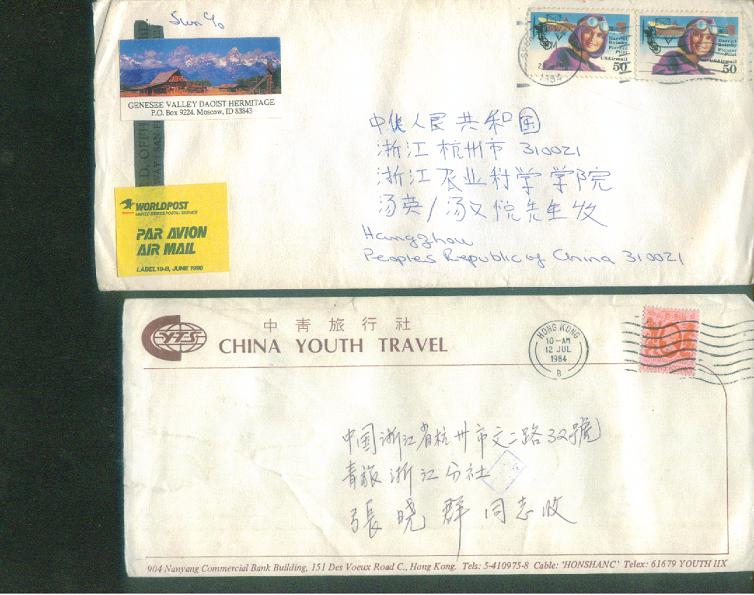 Sun Yo
GENESEE VALLEY DAOIST HERMITAGE
P.O. Box 9224, Moscow, ID 83843
WORLDPOST
UNITED STATES POSTAL SERVICE
PAR AVION
AIR MAIL
LABEL 19-B, JUNE 1990
Harriet
Quimby
Pioneer
Pilot
USAirmail
50
Harriet
Quimby
Pioneer
Pilot
USAirmail
50
中华人民共和国
浙江杭州市 310021
浙江农业科学学院
汤英/汤又悦先生收
Hangzhou
Peoples Republic of China 310021
YTS
中青旅行社
CHINA YOUTH TRAVEL
HONG KONG
10-AM
12 JUL
1984
B
中国浙江省杭州市文二路32號
青旅浙江分社
張曉群同志收
904 Nanyang Commercial Bank Building, 151 Des Voeux Road C., Hong Kong. Tels: 5-410975-8 Cable: 'HONSHANC' Telex: 61679 YOUTH HX